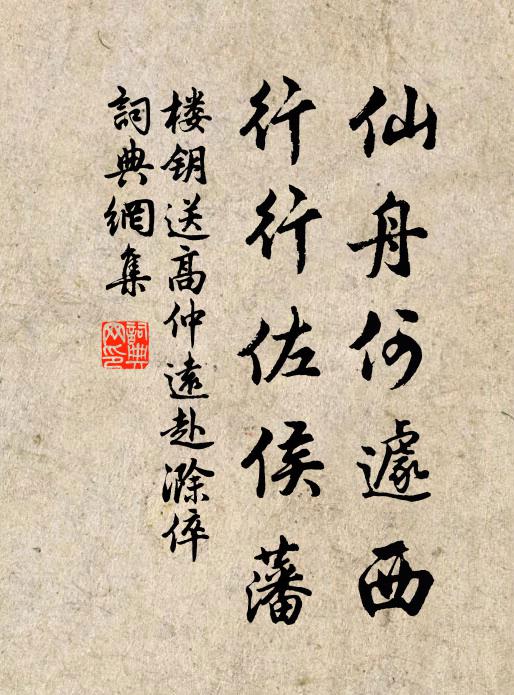 仙舟何遽西
行行佐侯藩
楼钥送高仲遠赴滁倅
詞典網集
詞典网印